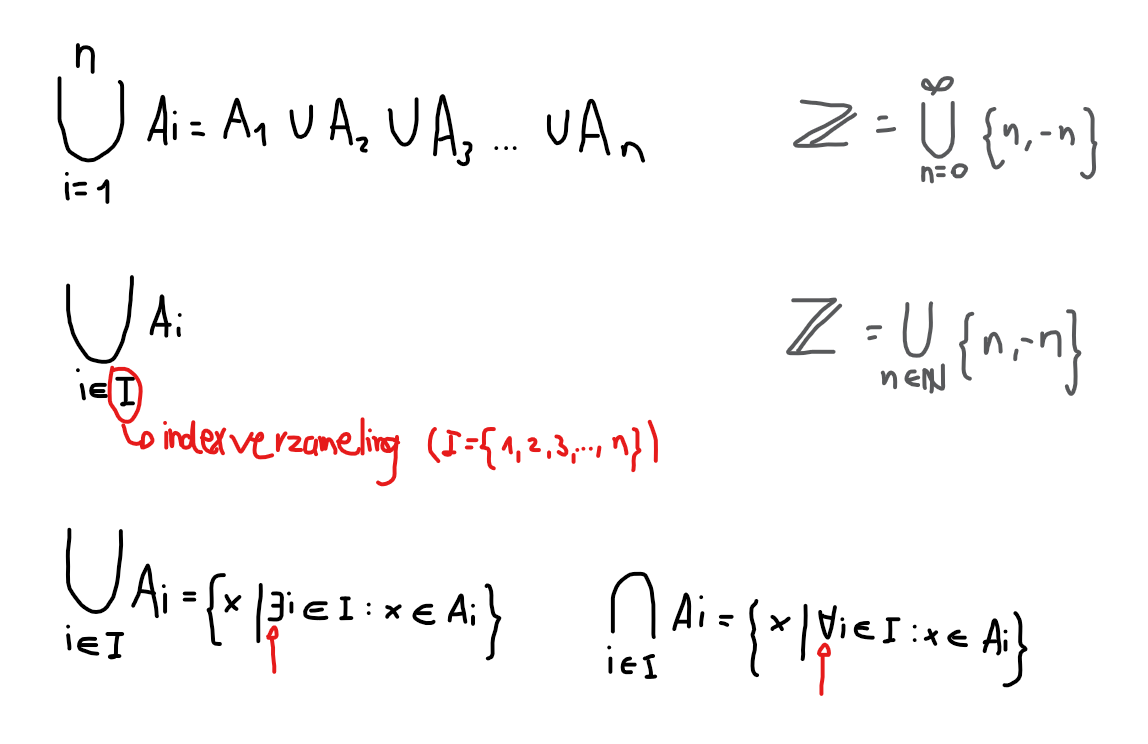 n
⋃ Ai = A1 ∪ A2 ∪ A3 ... ∪ An
i=1
∞
ℤ = ⋃ {n, -n}
n=0
⋃ Ai
i∈I
↳ indexverzameling (I={1, 2, 3, ..., n})
ℤ = ⋃ {n, -n}
n∈ℕ
⋃ Ai = {x | ∃i ∈ I : x ∈ Ai}
i∈I
⋂ Ai = {x | ∀i ∈ I : x ∈ Ai}
i∈I